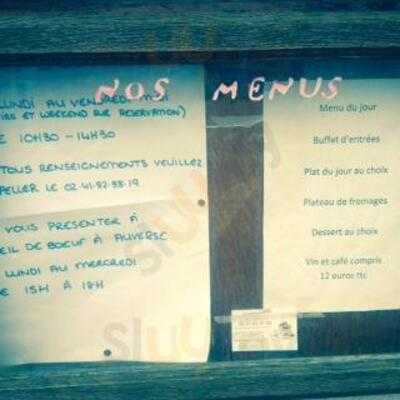 NOS MENUS
LUNDI AU VENDREDI MIDI
ET WEEKEND SUR RESERVATION)
10H30 - 14H30
TOUS RENSEIGNEMENTS VEUILLEZ
PELLER LE
VOUS PRESENTER À
EIL DE BOEUF À AUVERSE
LUNDI AU MERCREDI
15H À 18H
Menu du jour
Buffet d'entrées
Plat du jour au choix
Plateau de fromages
Dessert au choix
Vin et café compris
12 euros ttc